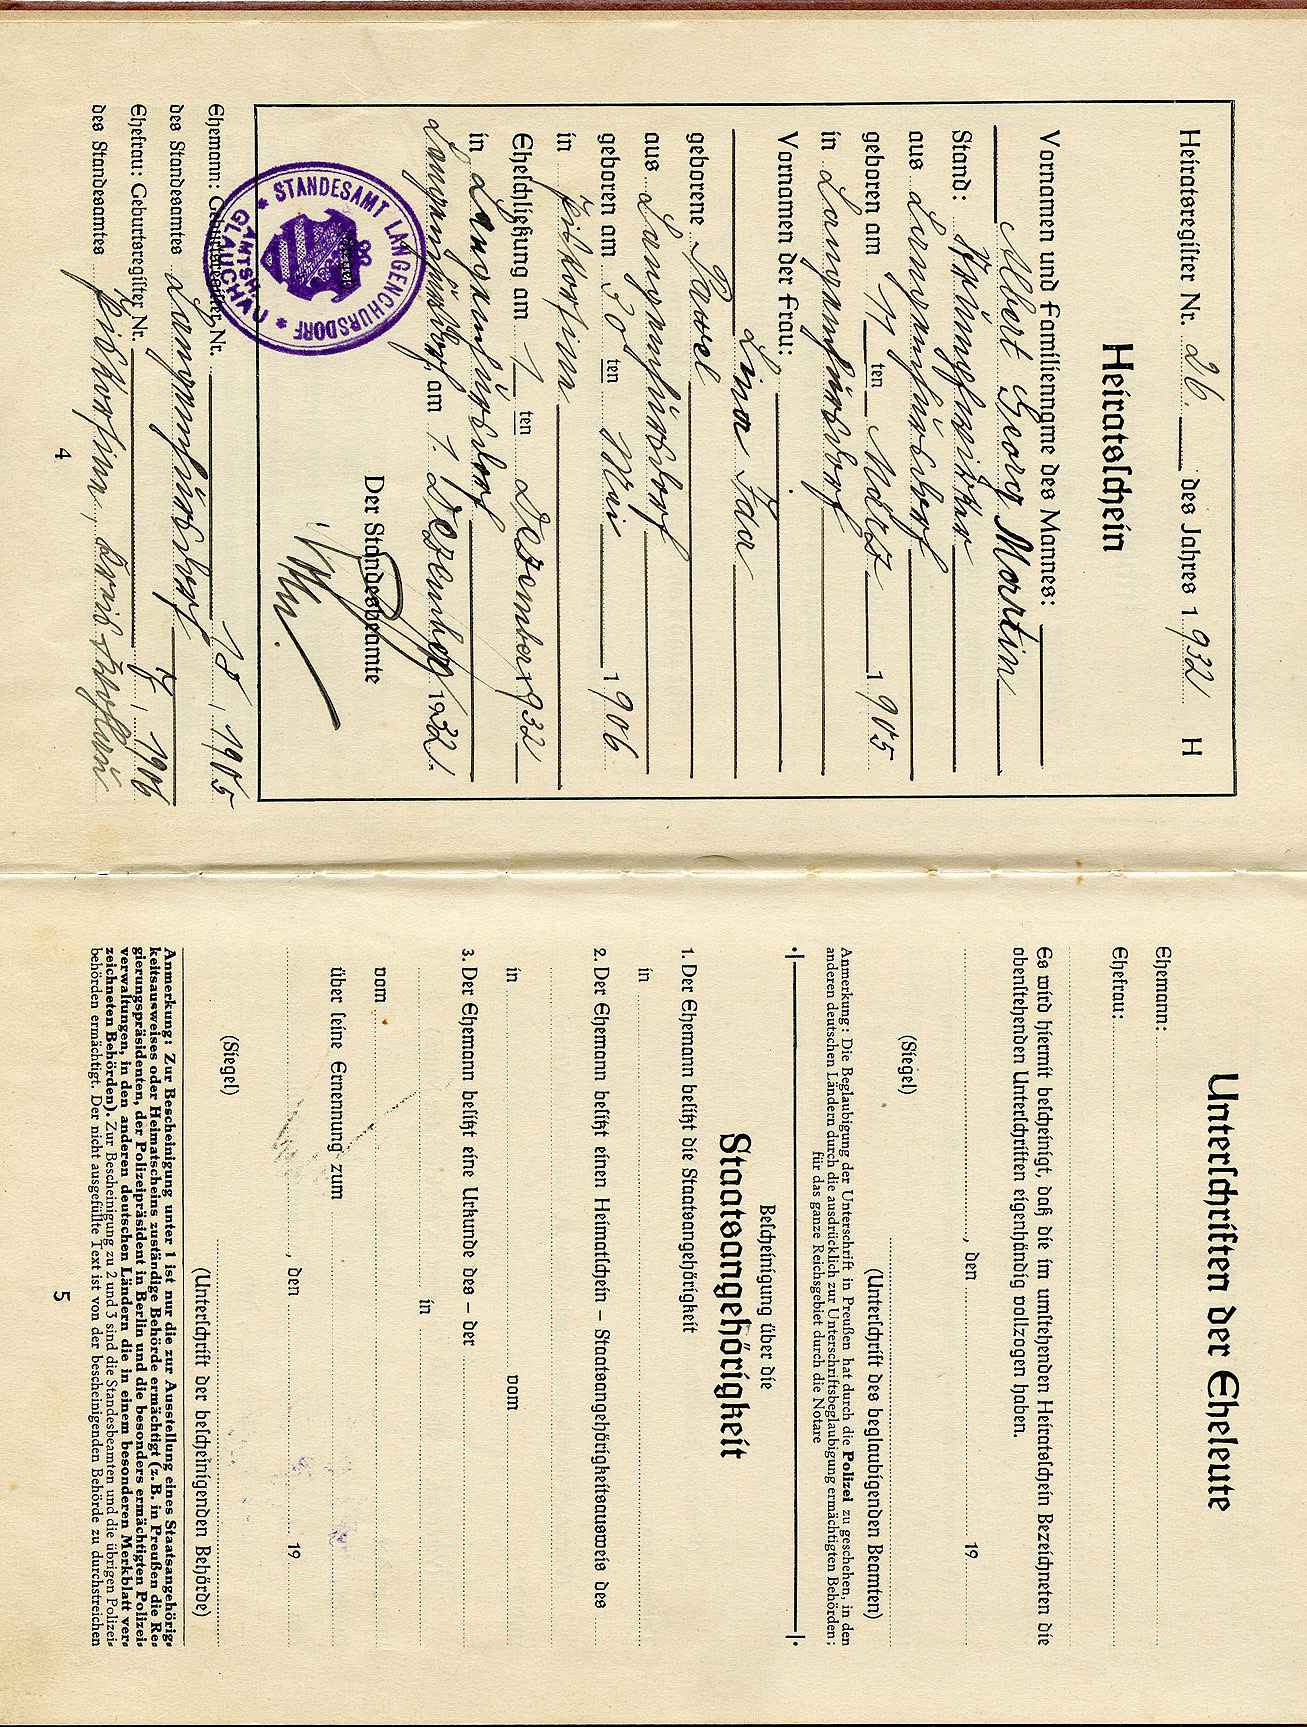 Heiratsregister Nr. 26. des Jahres 1932 H
Heiratsschein
Vornamen und Familienname des Mannes:
Albert Georg Martin
Stand:
aus Langenchursdorf
geboren am 11 ten März 1905
in Langenchursdorf
Vornamen der Frau:
Lina Ida
geborene Pawel
aus Langenchursdorf
geboren am 30 ten Mai 1906
in
Eheschließung am 1 ten Dezember 1932
in Langenchursdorf
Langenchursdorf, am 1. Dezember 1932.
Der Standesbeamte
STANDESAMT LANGENCHURSDORF
* AMTSH. GLAUCHAU *
Sachsen
Ehemann: Geburtsregister Nr. 18, 1905
des Standesamtes Langenchursdorf
Ehefrau: Geburtsregister Nr. 7, 1906
des Standesamtes
4
Unterschriften der Eheleute
Ehemann:
Ehefrau:
Es wird hiermit bescheinigt, daß die im umstehenden Heiratsschein Bezeichneten die
obenstehenden Unterschriften eigenhändig vollzogen haben.
, den 19
(Siegel)
(Unterschrift des beglaubigenden Beamten)
Anmerkung: Die Beglaubigung der Unterschrift in Preußen hat durch die Polizei zu geschehen, in den
anderen deutschen Ländern durch die ausdrücklich zur Unterschriftsbeglaubigung ermächtigten Behörden;
für das ganze Reichsgebiet durch die Notare
Bescheinigung über die
Staatsangehörigkeit
1. Der Ehemann besitzt die Staatsangehörigkeit
in
2. Der Ehemann besitzt einen Heimatschein – Staatsangehörigkeitsausweis des
in vom
3. Der Ehemann besitzt eine Urkunde des – der
in
vom
über seine Ernennung zum
, den 19
(Siegel)
(Unterschrift der bescheinigenden Behörde)
Anmerkung: Zur Bescheinigung unter 1 ist nur die zur Ausstellung eines Staatsangehörig-
keitsausweises oder Heimatscheins zuständige Behörde ermächtigt (z. B. in Preußen die Re-
gierungspräsidenten, der Polizeipräsident in Berlin und die besonders ermächtigten Polizei-
verwaltungen, in den anderen deutschen Ländern die in einem besonderen Merkblatt ver-
zeichneten Behörden). Zur Bescheinigung zu 2 und 3 sind die Standesbeamten und die übrigen Polizei-
behörden ermächtigt. Der nicht ausgefüllte Text ist von der bescheinigenden Behörde zu durchstreichen
5